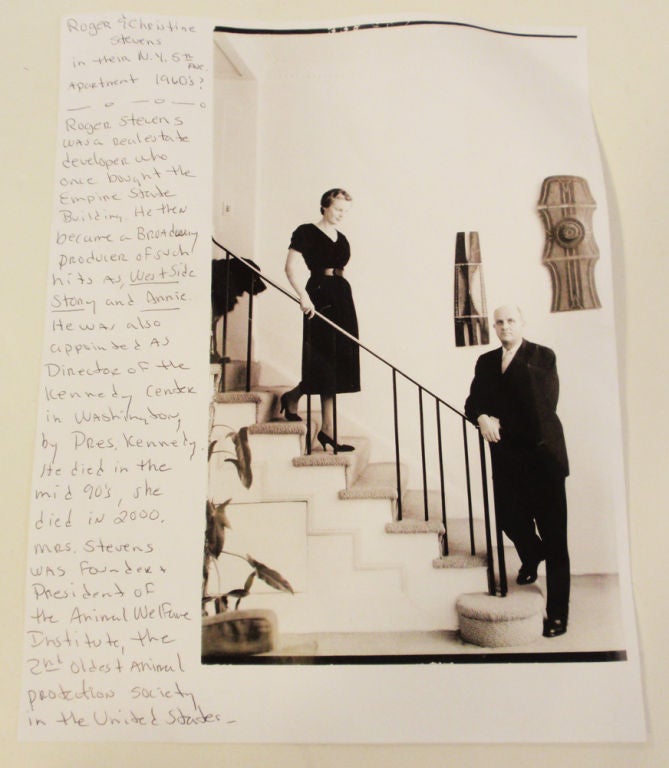 Roger & Christine
Stevens
in their N.Y. 5th Ave
Apartment 1960's?
Roger Stevens
was a real estate
developer who
once bought the
Empire State
Building. He then
became a Broadway
producer of such
hits as, West Side
Story and Annie.
He was also
appointed as
Director of the
Kennedy Center
in Washington,
by Pres. Kennedy.
He died in the
mid 90's, she
died in 2000.
Mrs. Stevens
was founder &
President of
the Animal Welfare
Institute, the
2nd oldest Animal
protection society
in the United States_